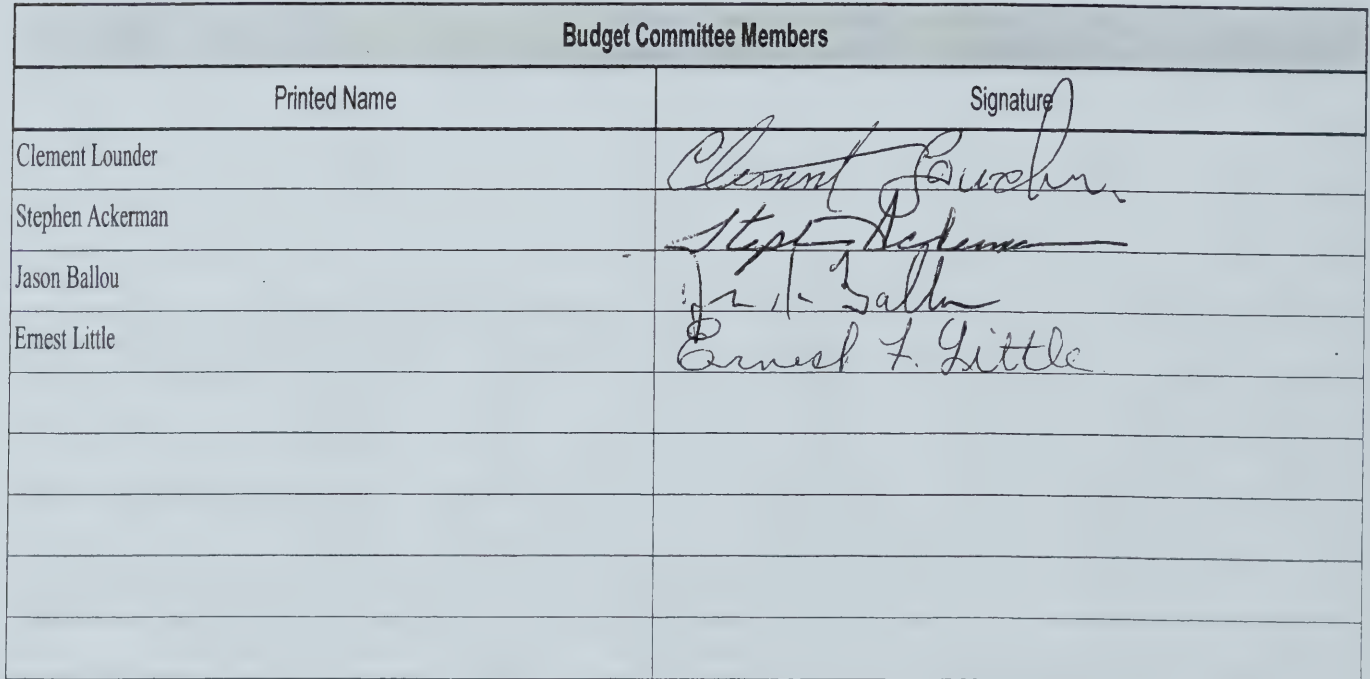 Budget Committee Members
Printed Name Signature
Clement Lounder Clement Lounder
Stephen Ackerman Steph Ackerman
Jason Ballou Ballou
Ernest Little Ernest F. Little